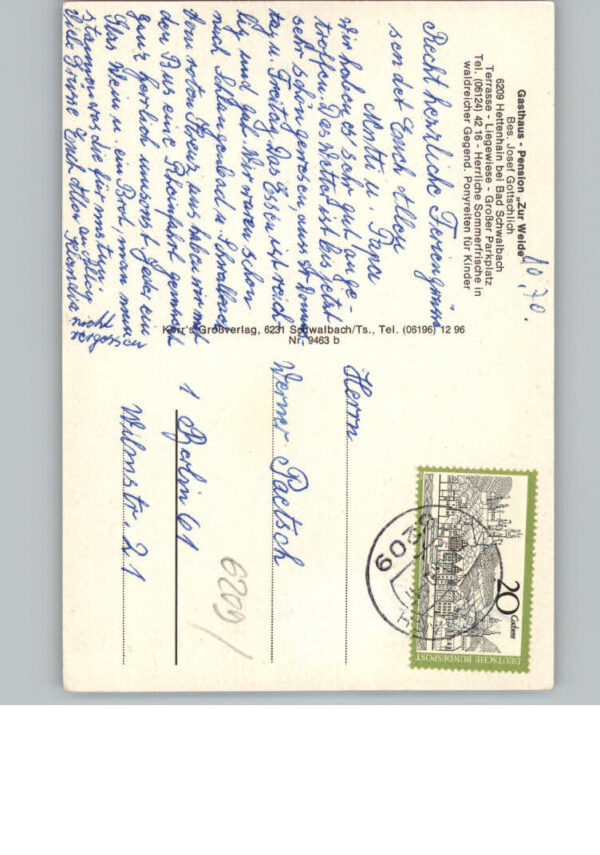 Gasthaus - Pension „Zur Weide"
Bes. Josef Gottschlich
6209 Hettenhain bei Bad Schwalbach
Terrasse - Liegewiese - Großer Parkplatz
Tel. (06124) 42 16 - Herrliche Sommerfrische in
waldreicher Gegend. Ponyreiten für Kinder
10.70.
Recht herrliche Feriengrüße
sendet Euch Allen
Mutti u. Papa
Wir haben es sehr gut ge-
troffen. Das Wetter ist bis jetzt
sehr schön gewesen
u. Freitag. Das Essen ist reich
lig und gut. Wir waren schon
nach
dem roten Kreuz, uns haben wir mit
den Bus eine Rheinfahrt gemacht
ganz herrlich umsonst jeder ein
Glas Wein u. ein Brot, man muß
staunen was die für uns tun.
Viele Grüße Euch allen an Alle
nicht
vergessen
Kerr's Großverlag, 6231 Schwalbach/Ts., Tel. (06196) 12 96
Nr. 9463 b
20
Cochem
DEUTSCHE BUNDESPOST
6209
Herrn
Werner Paetsch
1 Berlin 61
Wilmstr. 21
6209/